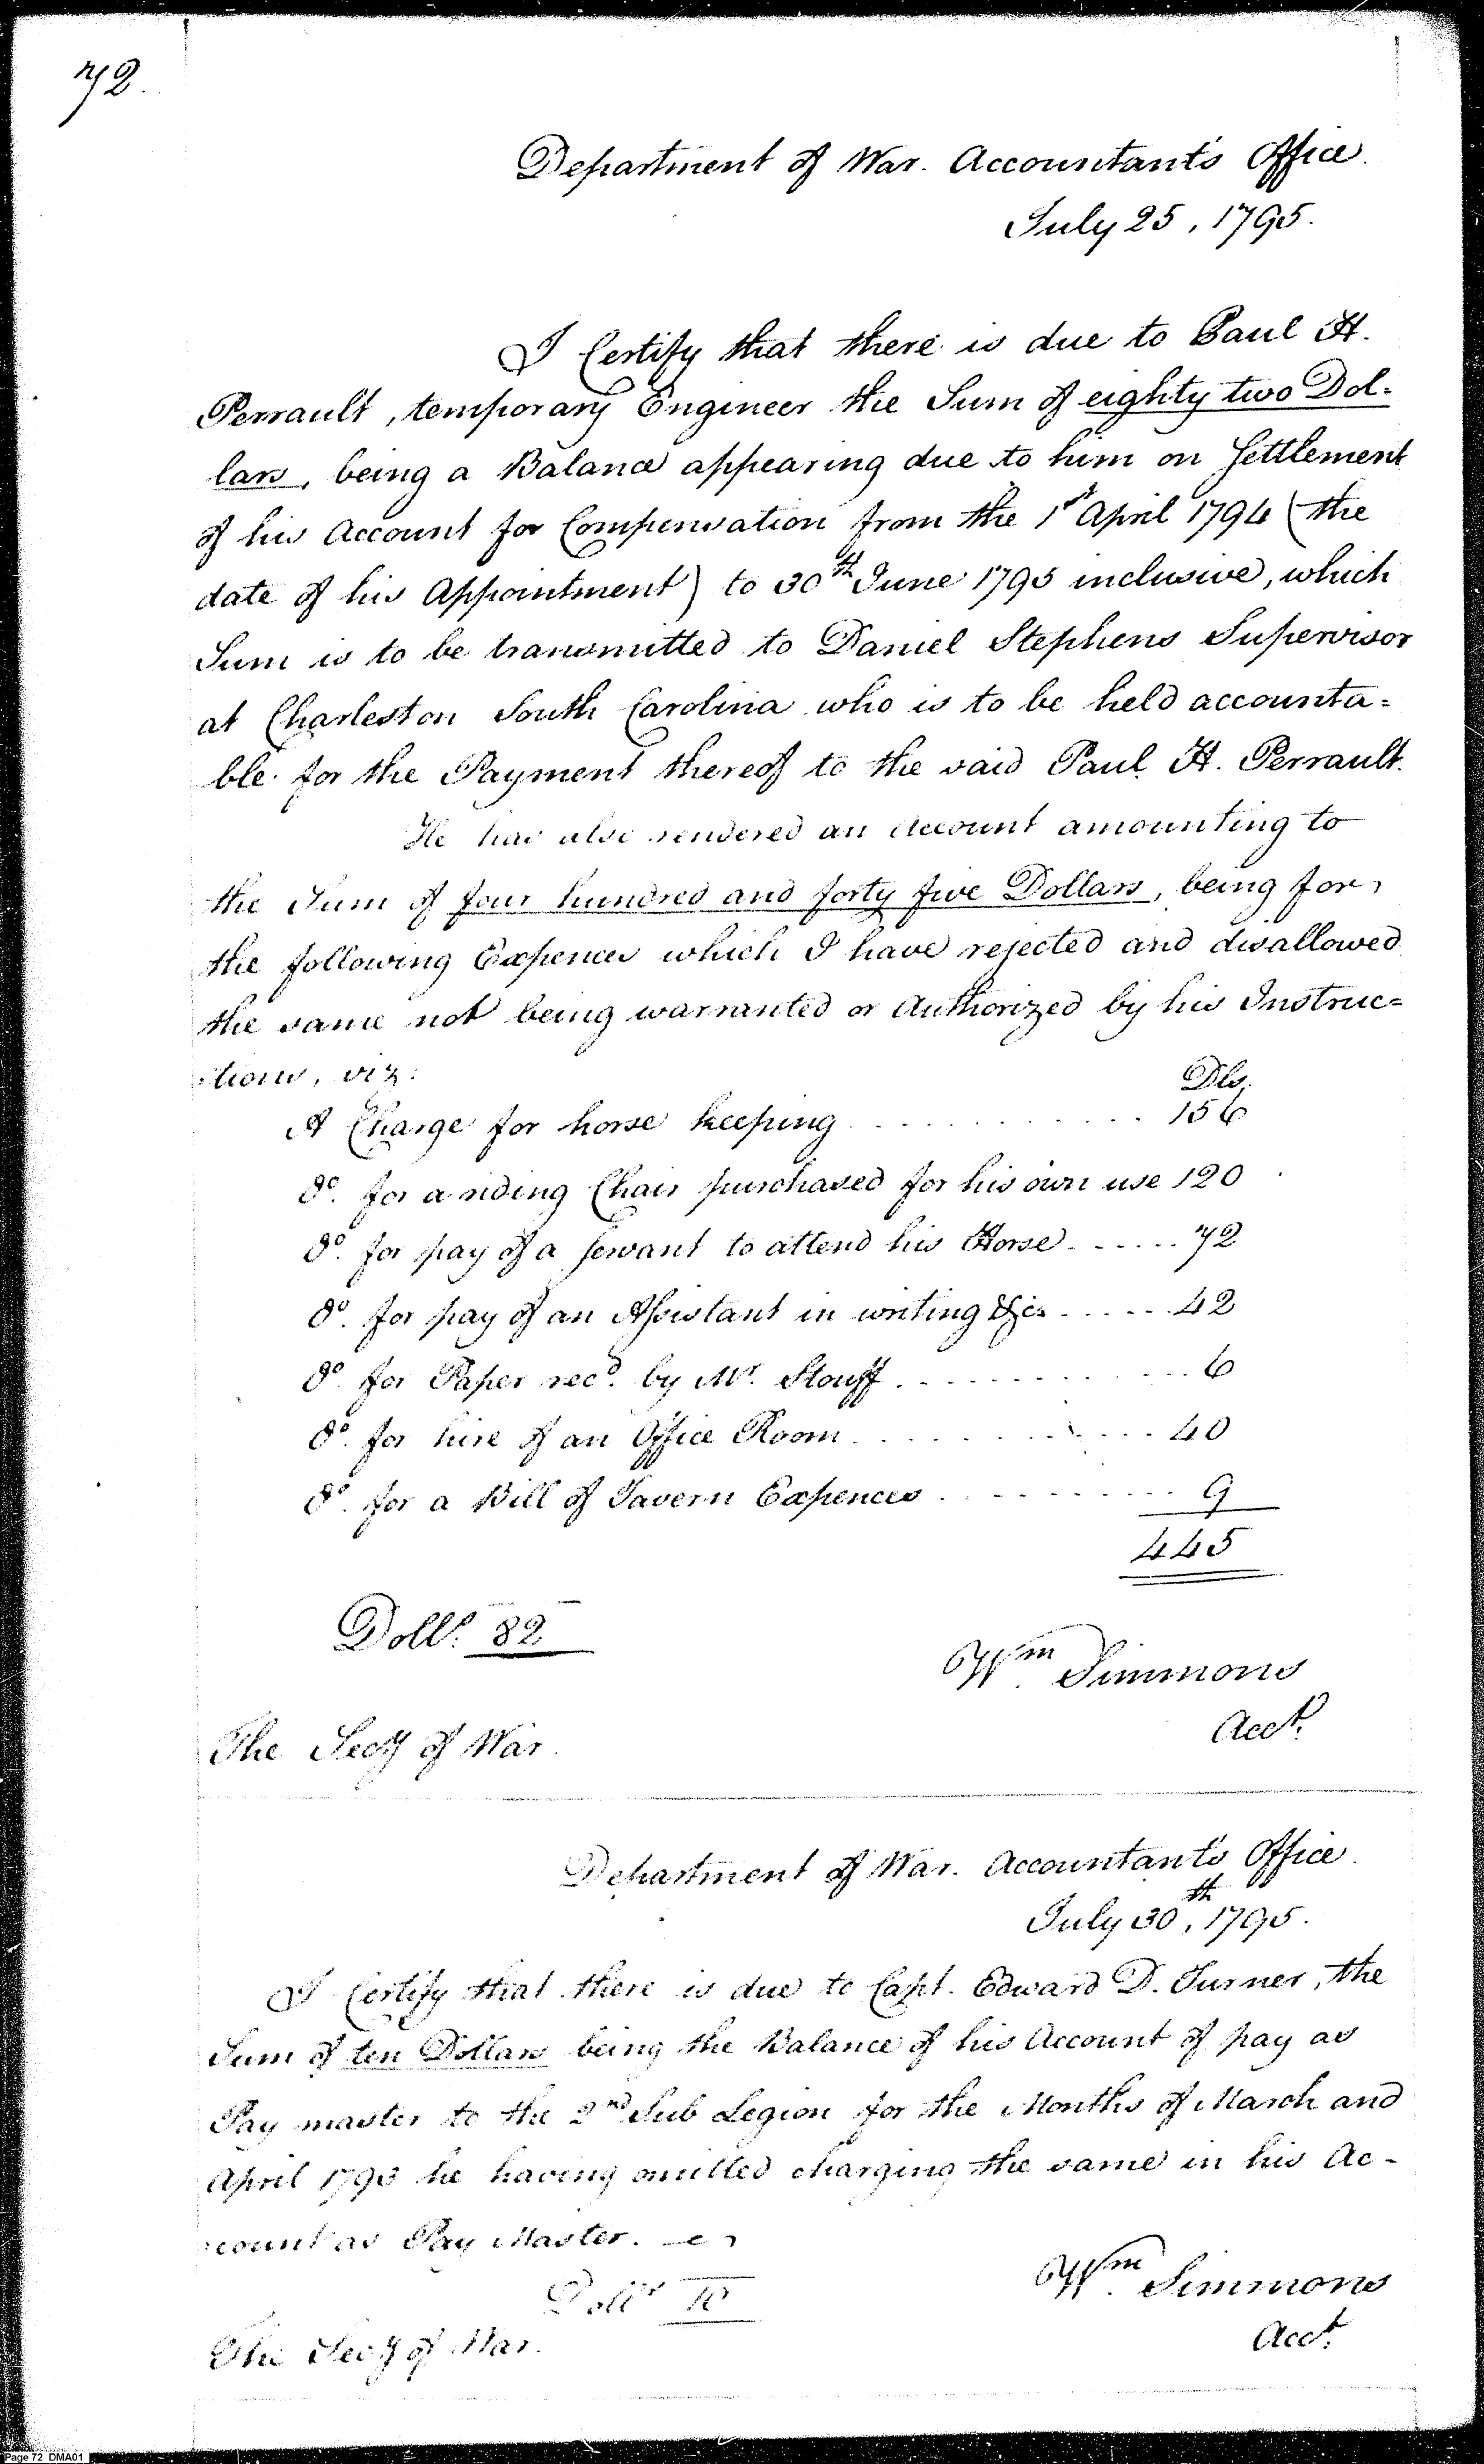 72.
Department of War. Accountant's Office.
July 25, 1795.
I Certify that there is due to Paul H.
Perrault, temporary Engineer the Sum of eighty two Dol=
lars, being a Balance appearing due to him on Settlement
of his Account for Compensation from the 1st April 1794 (the
date of his Appointment) to 30th June 1795 inclusive, which
Sum is to be transmitted to Daniel Stephens Supervisor
at Charleston South Carolina who is to be held accounta=
ble for the Payment thereof to the said Paul H. Perrault.
He has also rendered an Account amounting to
the Sum of four hundred and forty five Dollars, being for
the following Expences which I have rejected and disallowed
the same not being warranted or Authorized by his Instruc=
=tions, viz:
Dls.
A Charge for horse keeping . . . . . . . . . . 156
do. for a riding Chair purchased for his own use 120
do. for pay of a Servant to attend his Horse . . . . . . 72
do. for pay of an Assistant in writing &c. . . . . . 42
do. for Paper recd. by Mr. Stouff . . . . . . . . . . 6
do. for hire of an Office Room . . . . . . . . . . 40
do. for a Bill of Tavern Expences . . . . . . . . . . 9
445
Dolls. 82
Wm. Simmons
Acct.
The Secy of War.
Department of War. Accountant's Office.
July 30th, 1795.
I Certify that there is due to Capt. Edward D. Turner, the
Sum of ten Dollars being the Balance of his Account of pay as
Pay master to the 2nd Sub Legion for the Months of March and
April 1793 he having omitted charging the same in his Ac-
=count as Pay Master.
Dolls 10
Wm. Simmons
Acct.
The Secy of War.
Page 72 DMA01